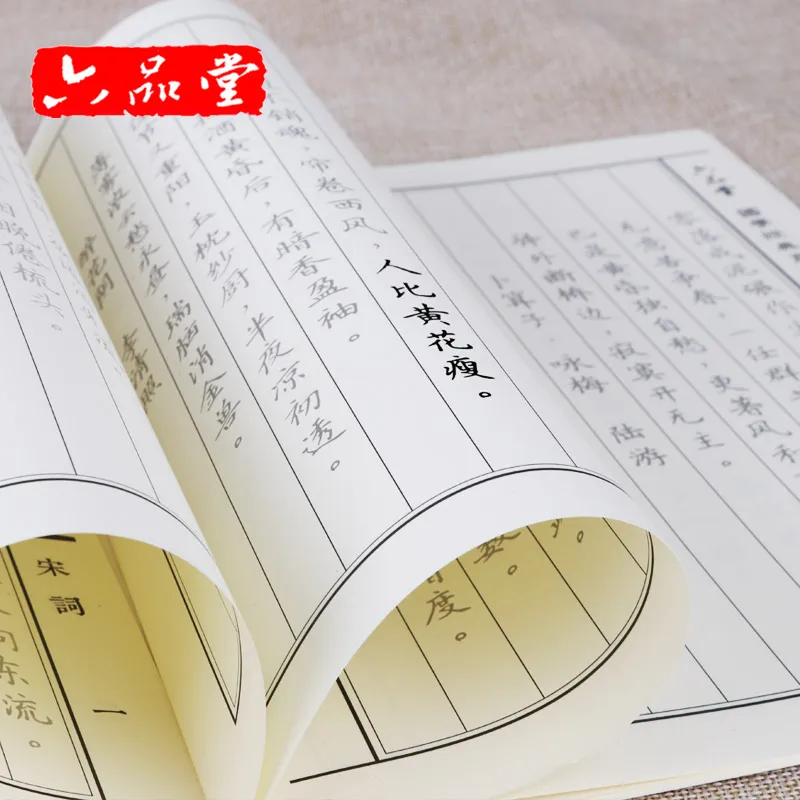 六品堂
晚倦梳头。
醉花阴 李清照
薄雾浓云愁永昼，瑞脑消金兽。
节又重阳，玉枕纱厨，半夜凉初透。
酒黄昏后，有暗香盈袖。
销魂，帘卷西风，人比黄花瘦。
卜算子·咏梅 陆游
驿外断桥边 寂寞开无主。
已是黄昏独自愁，更著风和
无意苦争春，一任群
零落成泥碾
宋詞
一
向东流。
度。
数。